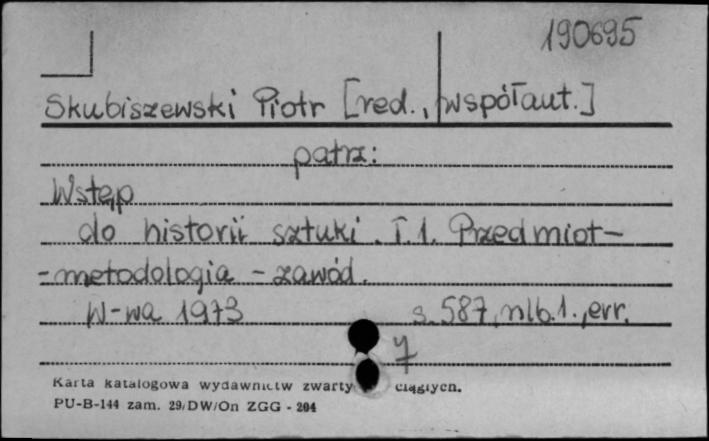 190695
Skubiszewski Piotr [red., współaut.]
patrz:
Wstęp
do historii sztuki. T.1. Przedmiot-
-metodologia - zawód.
W-wa 1973 s. 587, nlb. 1., err.
7
Karta katalogowa wydawnictw zwarty ciągłych.
PU-B-144 zam. 29/DW/On ZGG - 204